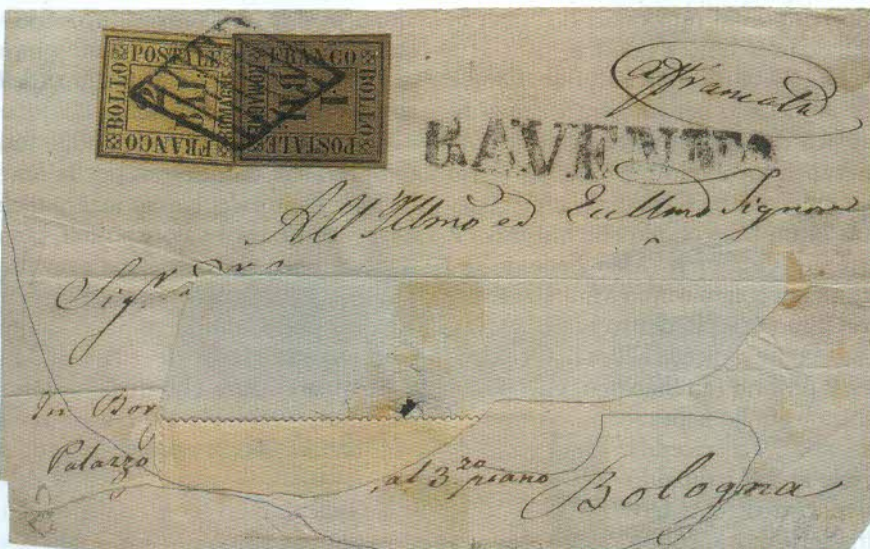 BOLLO POSTALE FRANCO ROMAGNE BAI:
FRANCO BOLLO POSTALE ROMAGNE BAI: 1
affrancata
RAVENNA
All'Illmo ed Eccllmo Signore
Sigr.
In Bor
Palazzo al 3zo piano
Bologna